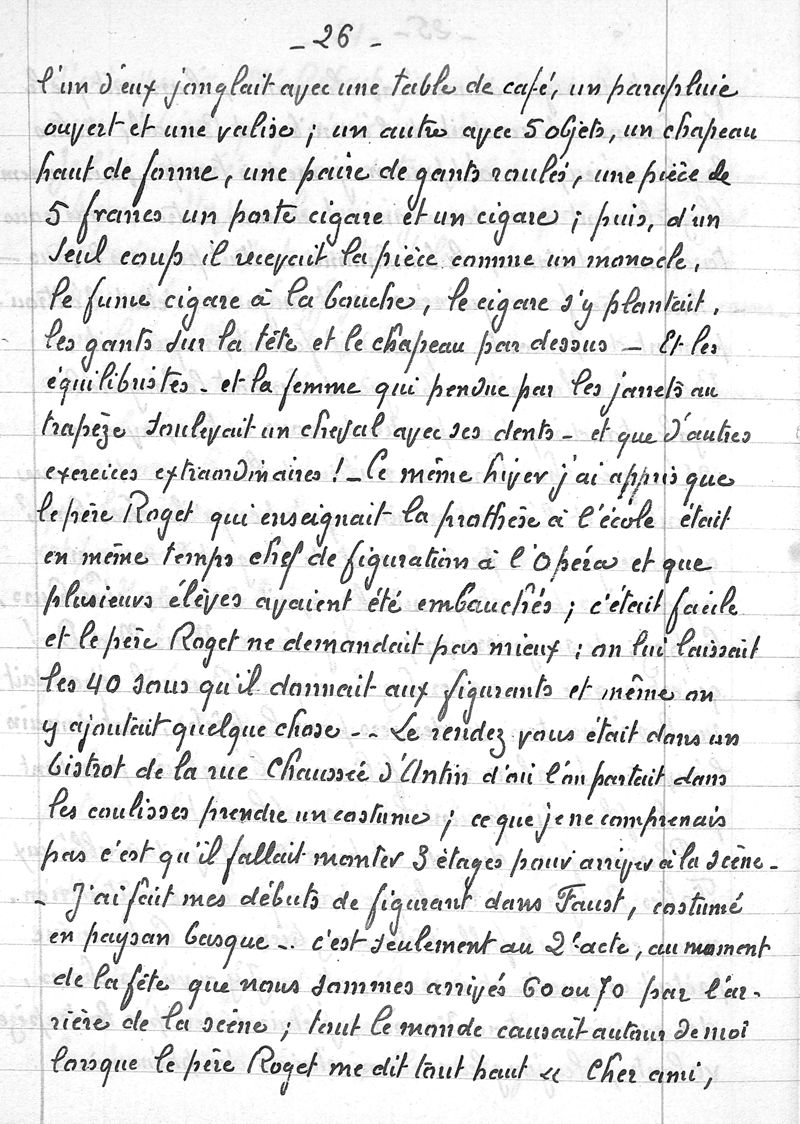 - 26 -
l'un d'eux jonglait avec une table de café, un parapluie
ouvert et une valise ; un autre avec 5 objets, un chapeau
haut de forme, une paire de gants roulés, une pièce de
5 francs un porte cigare et un cigare ; puis, d'un
seul coup il recevait la pièce comme un monocle,
le fume cigare à la bouche, le cigare s'y plantait,
les gants sur la tête et le chapeau par dessus - Et les
équilibristes - et la femme qui pendue par les jarrets au
trapèze soulevait un cheval avec ses dents - et que d'autres
exercices extraordinaires ! - Ce même hiver j'ai appris que
le père Roget qui enseignait la prothèse à l'école était
en même temps chef de figuration à l'Opéra et que
plusieurs élèves avaient été embauchés ; c'était facile
et le père Roget ne demandait pas mieux ; on lui laissait
les 40 sous qu'il donnait aux figurants et même on
y ajoutait quelque chose - - Le rendez vous était dans un
bistrot de la rue Chaussée d'Antin d'où l'on partait dans
les coulisses prendre un costume ; ce que je ne comprenais
pas c'est qu'il fallait monter 3 étages pour arriver à la scène -
- J'ai fait mes débuts de figurant dans Faust, costumé
en paysan basque - - c'est seulement au 2e acte, au moment
de la fête que nous sommes arrivés 60 ou 70 par l'ar-
rière de la scène ; tout le monde causait autour de moi
lorsque le père Roget me dit tout haut « Cher ami,